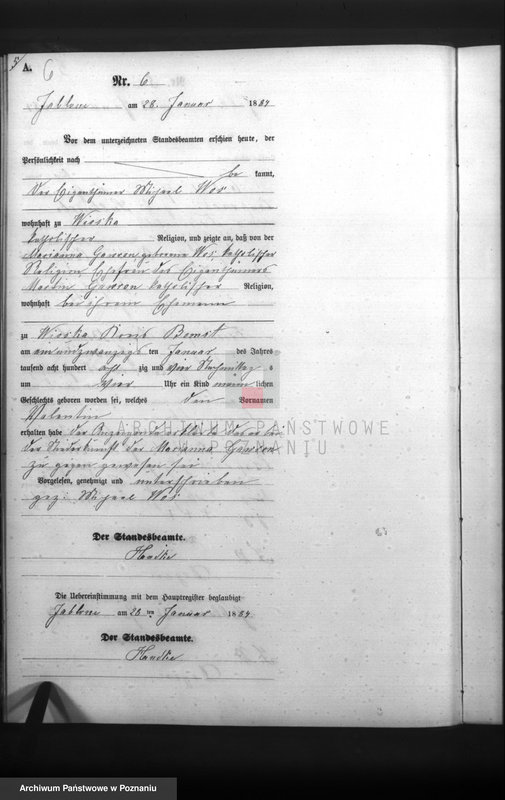 A. 6
Nr. 6
Jablone am 28. Januar 1884
Vor dem unterzeichneten Standesbeamten erschien heute, der
Persönlichkeit nach
be kannt,
der Eigenthümer Michael Wos
wohnhaft zu Wioska
katholischer Religion, und zeigte an, daß von der
Marianna Gawron geborene Wos, katholischer
Religion Ehefrau des Eigenthümers
Martin Gawron katholischer Religion,
wohnhaft bei ihrem Ehemann
zu Wioska Kreis Bomst
am ten Januar des Jahres
tausend acht hundert acht zig und vier Nachmittag s
um vier Uhr ein Kind männ lichen
Geschlechts geboren worden sei, welches den Vornamen
Valentin
erhalten habe der Anzeigende erklärte das er bei
der Niederkunft der Marianna Gawron
zu gegen gewesen sei
Vorgelesen, genehmigt und unterschrieben
gez: Michael Wos
Der Standesbeamte.
Handke
Die Uebereinstimmung mit dem Hauptregister beglaubigt
Jablone am 28 ten Januar 1884
Der Standesbeamte.
Handke
ARCHIWUM PAŃSTWOWE
W POZNANIU
Archiwum Państwowe w Poznaniu